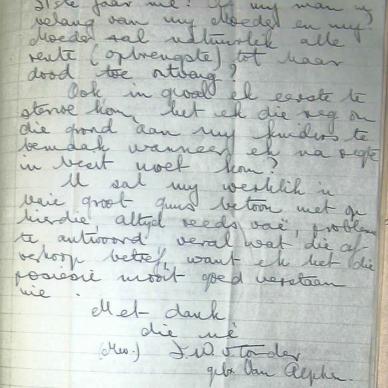 21ste jaar nie? Of my man se
belang van my Moeder en my
Moeder sal natuurlik alle
rente (opbrengste) tot haar
dood toe ontvang?
Ook in geval ek eerste te
sterwe kom, het ek die reg om
die grond aan my kinders te
bemaak wanneer ek na regte
in besit moet kom?
U sal my werklik 'n
baie groot guns betoon met op
hierdie, altyd reeds vaë, probleme
te antwoord veral wat die af-
verkoop betref, want ek het die
posiesie nooit goed verstaan
nie.
Met dank
die uwe
(Mev.)
gebr. Van Alphen.